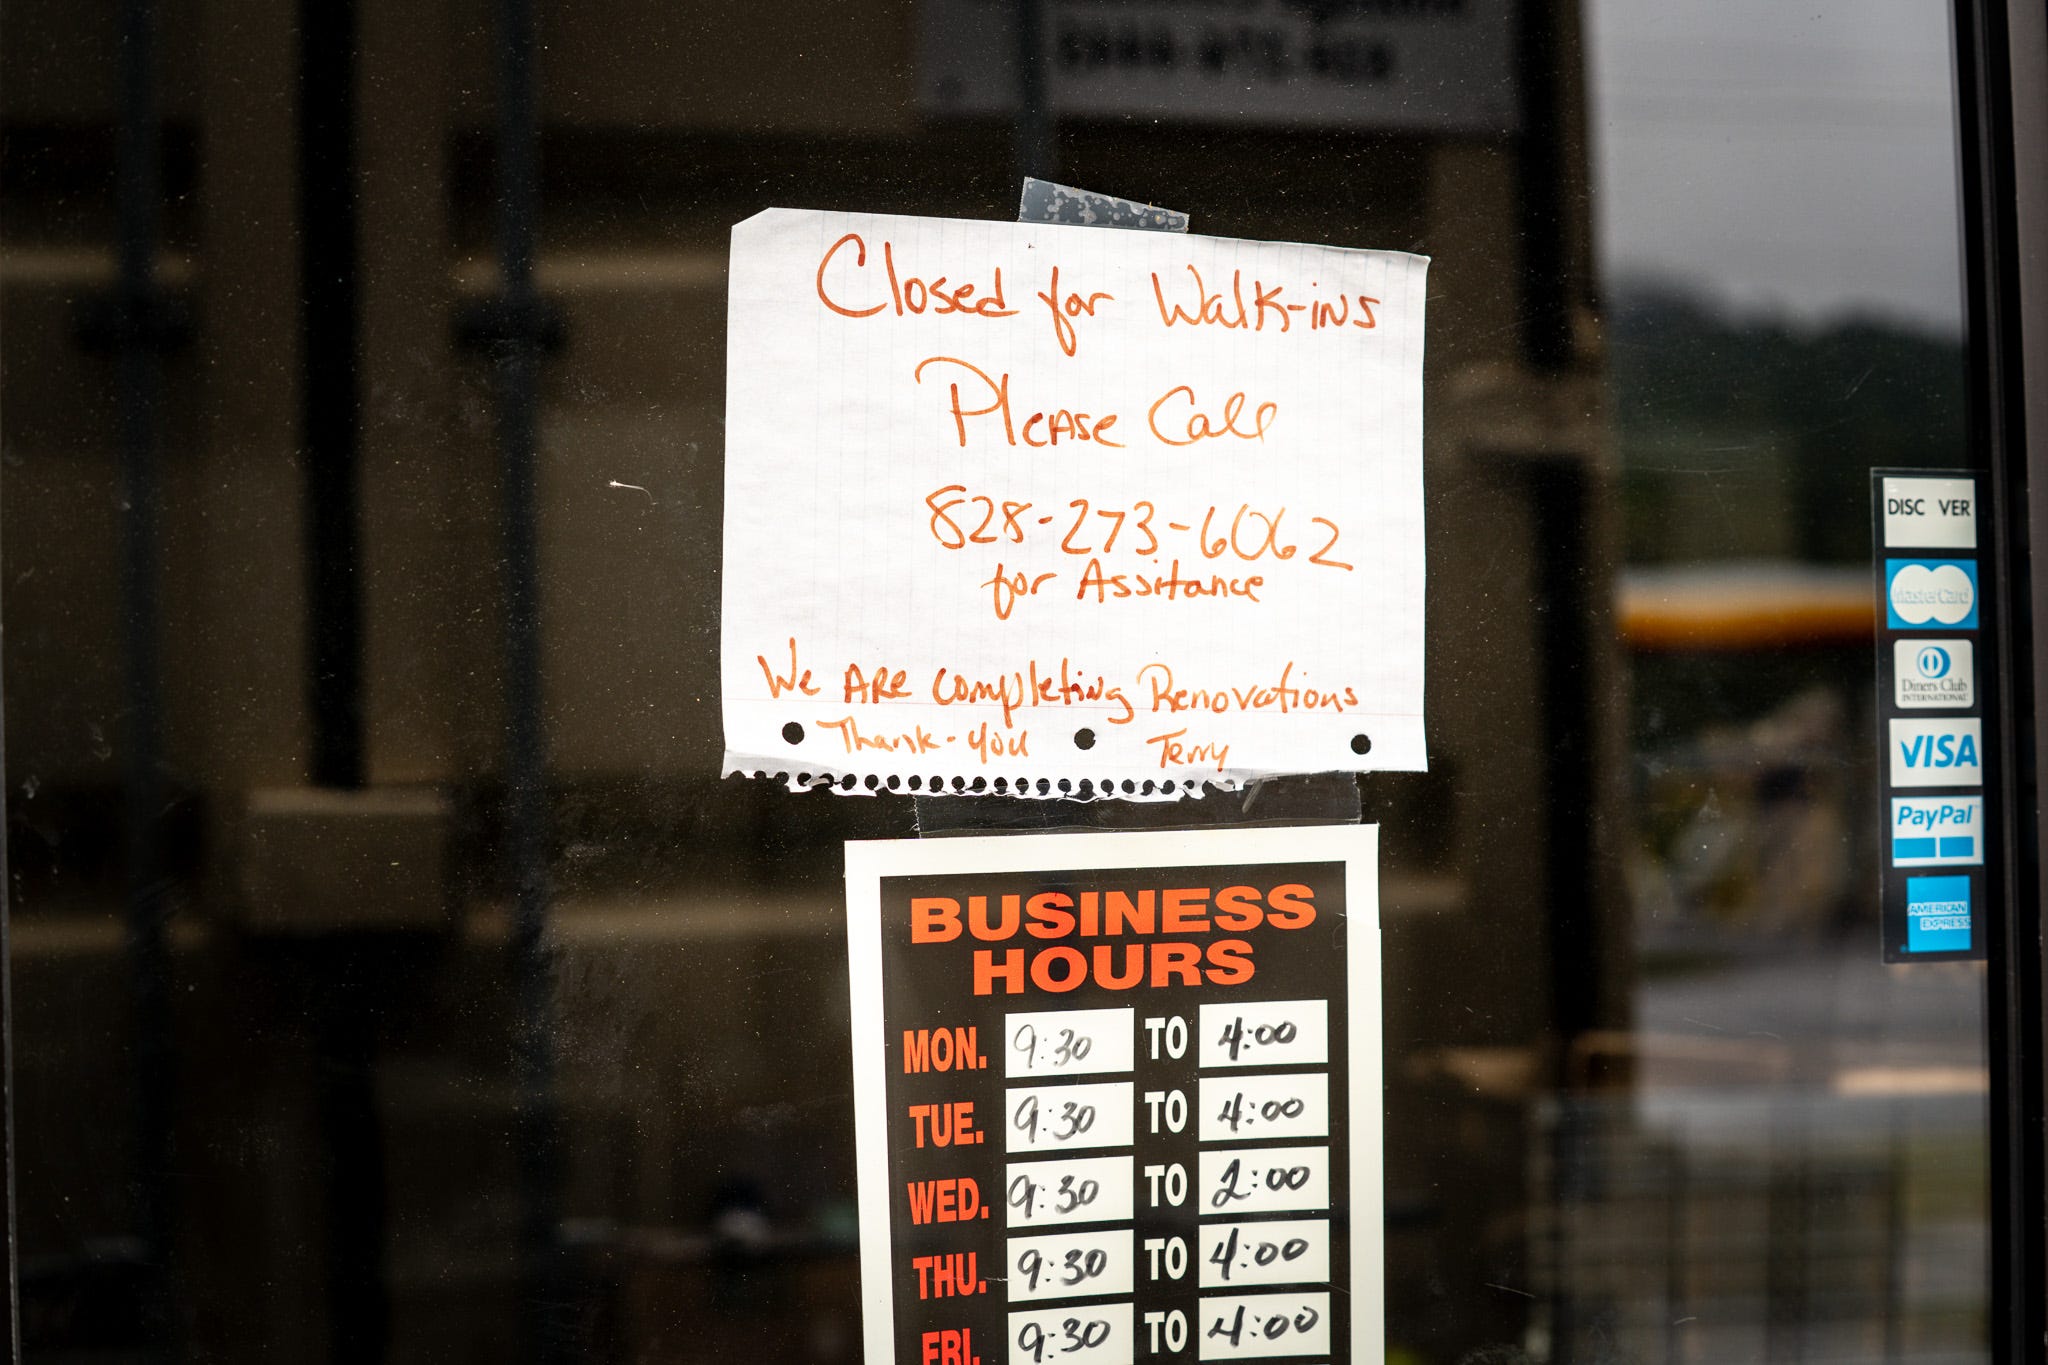 Closed for Walk-ins
Please Call
828-273-6062
for Assitance
We ARE completing Renovations
Thank-you Terry
BUSINESS
HOURS
MON. 9:30 TO 4:00
TUE. 9:30 TO 4:00
WED. 9:30 TO 2:00
THU. 9:30 TO 4:00
FRI. 9:30 TO 4:00
DISC VER
MasterCard
Diners Club
INTERNATIONAL
VISA
PayPal
AMERICAN
EXPRESS